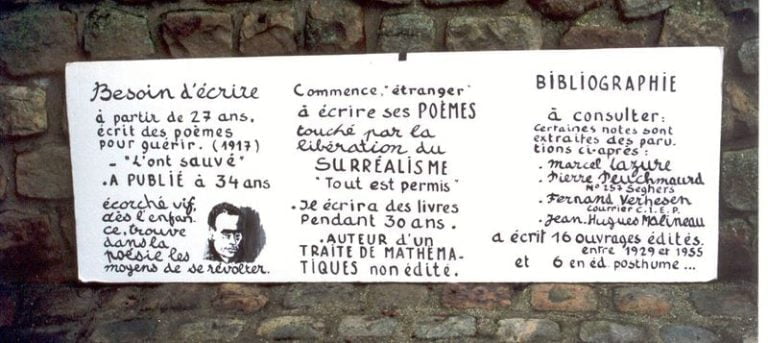 Besoin d'écrire
à partir de 27 ans,
écrit des poèmes
pour guérir. (1917)
- "L'ont sauvé"
.A PUBLIÉ à 34 ans
écorché vif,
dès l'enfan.
ce, trouve
dans la
poésie les
moyens de se révolter.
Commence, "étranger"
à écrire ses POÈMES
touché par la
libération du
SURRÉALISME
"Tout est permis"
.Il écrira des livres
Pendant 30 ans.
.AUTEUR d'un
TRAITE DE MATHÉMA-
TIQUES non édité.
BIBLIOGRAPHIE
à consulter:
Certaines notes sont
extraites des paru.
tions ci-après:
.Marcel Lazure
.Pierre Peuchmaurd
N° 257 Seghers
.Fernand Verhesen
Courrier C.I.E.P.
.Jean.Hugues Malineau
a écrit 16 ouvrages édités.
entre 1929 et 1955
et 6 en éd posthume...